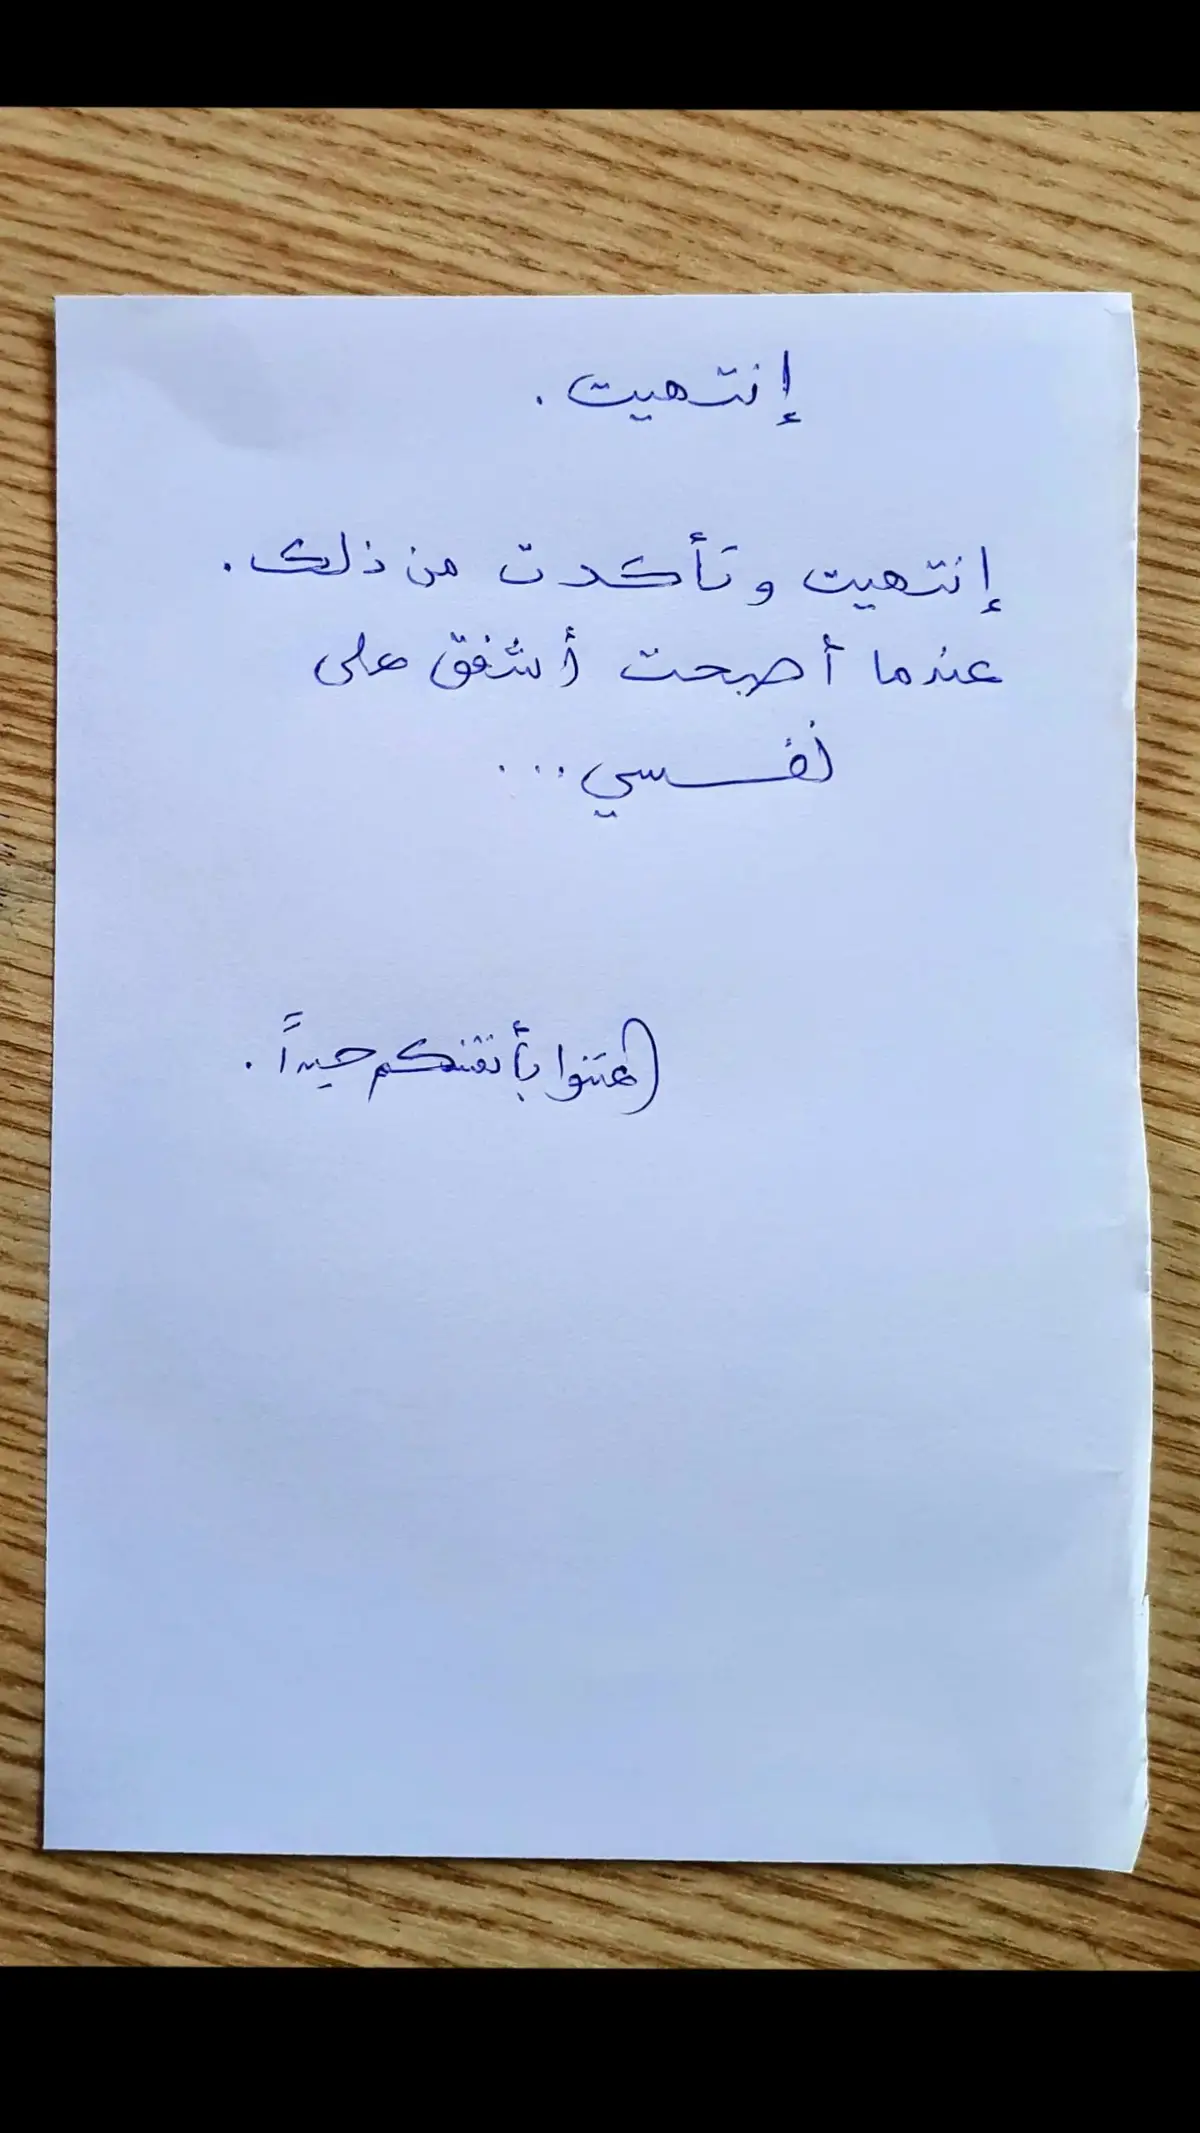 إنتهيت .
إنتهيت وتأكدت من ذلك .
عندما أصبحت أشفق على
نفسي ...
اهتنوا بأنفسكم جيداً .